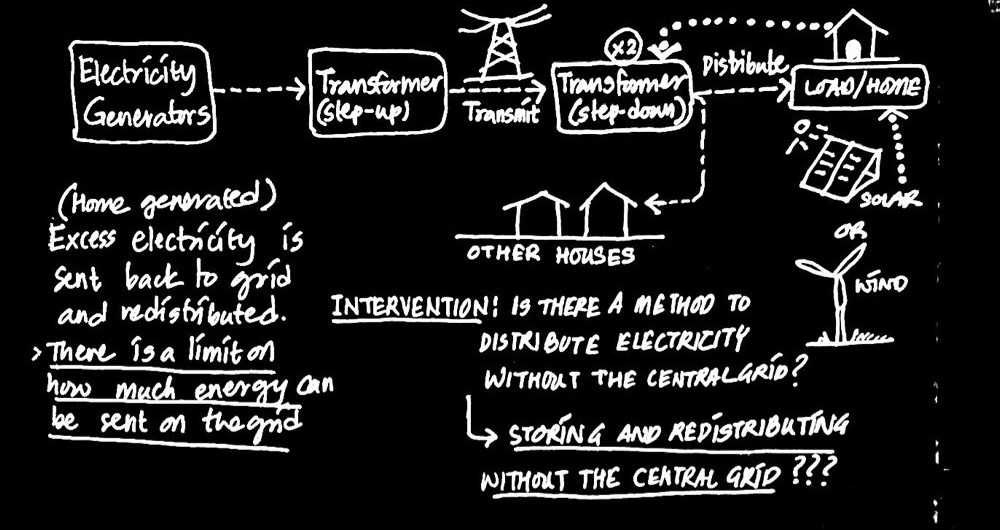 Electricity
Generators
Transformer
(step-up)
Transmit
x2
Transformer
(step-down)
Distibute
LOAD/HOME
SOLAR
OR
WIND
OTHER HOUSES
(Home generated)
Excess electricity is
sent back to grid
and redistributed.
> There is a limit on
how much energy can
be sent on the grid
INTERVENTION: IS THERE A METHOD TO
DISTRIBUTE ELECTRICITY
WITHOUT THE CENTRAL GRID?
STORING AND REDISTRIBUTING
WITHOUT THE CENTRAL GRID ???